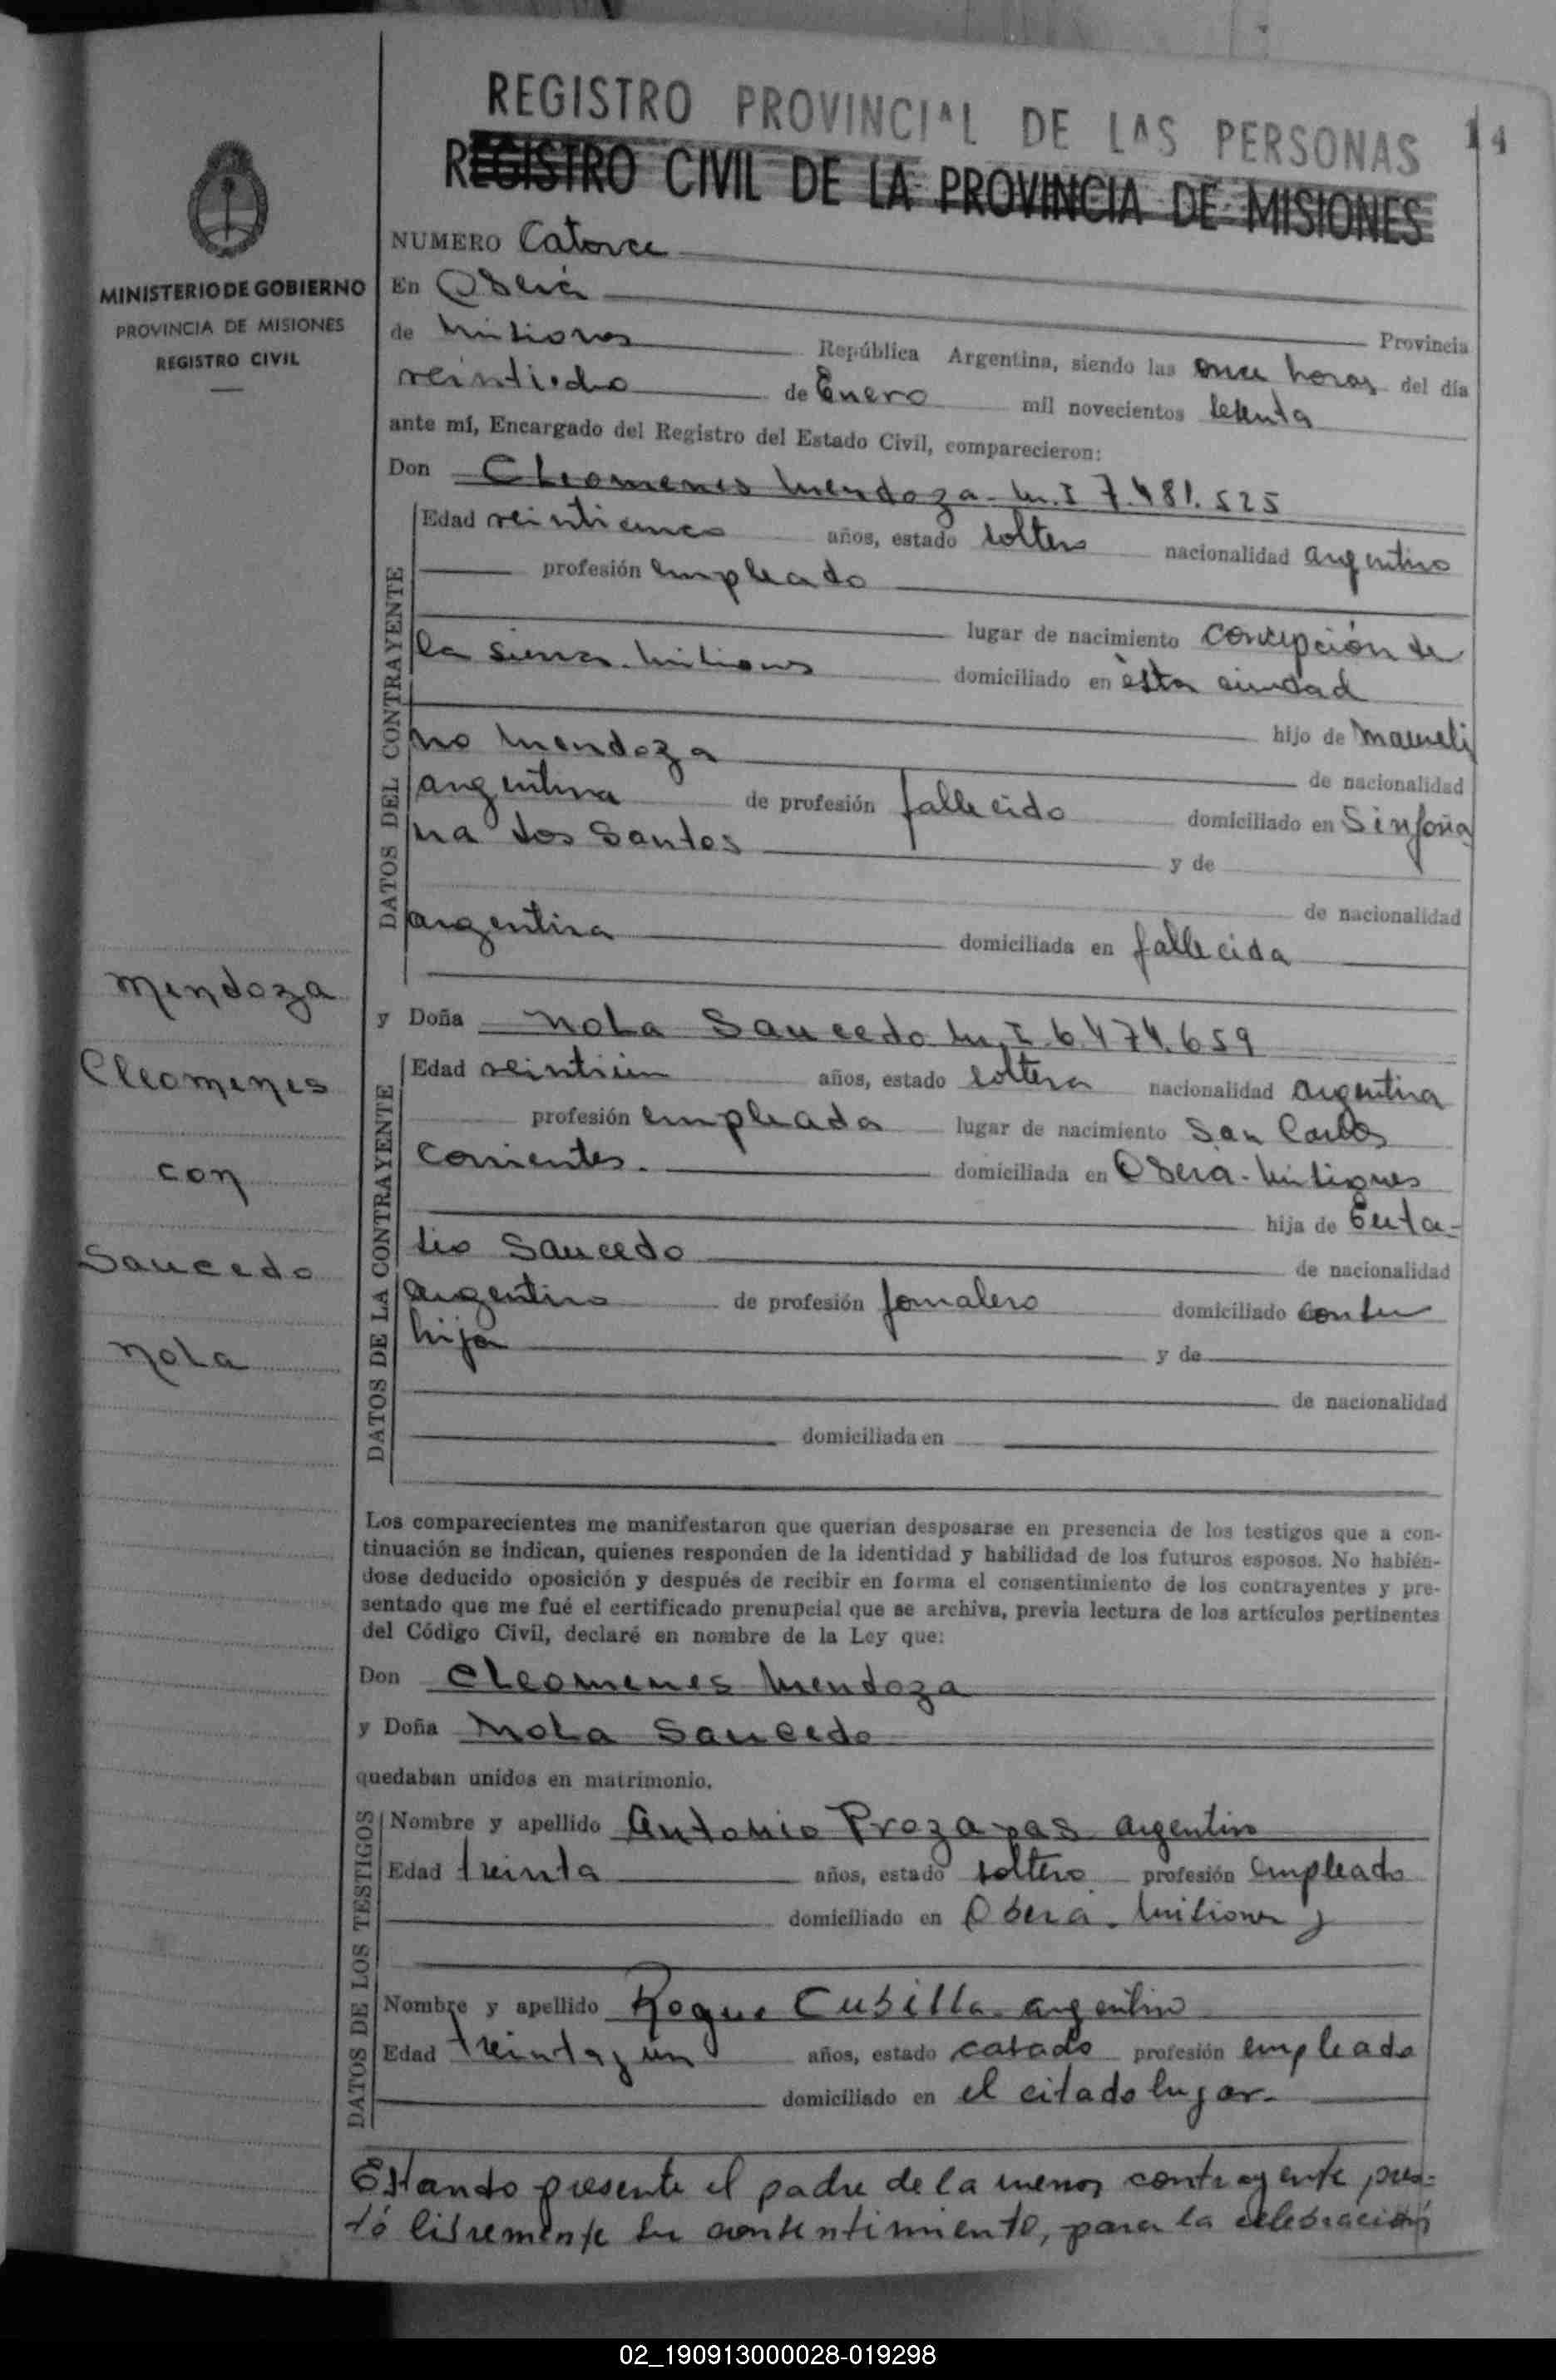 REGISTRO PROVINCIAL DE LAS PERSONAS
14
REGISTRO CIVIL DE LA PROVINCIA DE MISIONES
MINISTERIO DE GOBIERNO
PROVINCIA DE MISIONES
REGISTRO CIVIL
Mendoza
Cleomenes
con
Saucedo
Nola
NUMERO Catorce
En Oberá Provincia
de Misiones República Argentina, siendo las once horas del día
veintiocho de Enero mil novecientos setenta
ante mí, Encargado del Registro del Estado Civil, comparecieron:
Don Cleomenes Mendoza - M. I 7.481.525
DATOS DEL CONTRAYENTE
Edad veinticinco años, estado soltero nacionalidad argentino
profesión empleado
lugar de nacimiento Concepción de
la Sierra. Misiones domiciliado en ésta ciudad
hijo de Maureli
no Mendoza de nacionalidad
argentina de profesión fallecido domiciliado en Sinforia
na dos Santos y de
de nacionalidad
argentina domiciliada en fallecida
y Doña Nola Saucedo M. I 6.474.659
DATOS DE LA CONTRAYENTE
Edad veintiún años, estado soltera nacionalidad argentina
profesión empleada lugar de nacimiento San Carlos
Corrientes. domiciliada en Oberá - Misiones
hija de Eusta-
sio Saucedo de nacionalidad
argentino de profesión jornalero domiciliado con su
hija y de
de nacionalidad
domiciliada en
Los comparecientes me manifestaron que querían desposarse en presencia de los testigos que a con-
tinuación se indican, quienes responden de la identidad y habilidad de los futuros esposos. No habién-
dose deducido oposición y después de recibir en forma el consentimiento de los contrayentes y pre-
sentado que me fué el certificado prenupcial que se archiva, previa lectura de los artículos pertinentes
del Código Civil, declaré en nombre de la Ley que:
Don Cleomenes Mendoza
y Doña Nola Saucedo
quedaban unidos en matrimonio.
DATOS DE LOS TESTIGOS
Nombre y apellido Antonio Prozapas argentino
Edad treinta años, estado soltero profesión empleado
domiciliado en Oberá. Misiones y
Nombre y apellido Roque Cubilla - argentino
Edad treinta y un años, estado casado profesión empleado
domiciliado en el citado lugar.
Estando presente el padre de la menor contrayente, pres-
tó libremente su consentimiento, para la celebración
02_190913000028-019298